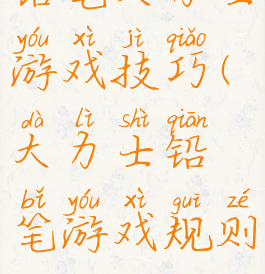 yóu xì jì qiǎo
游戏技巧(
dà lì shì qiān
大力士铅
bǐ yóu xì guī zé
笔游戏规则